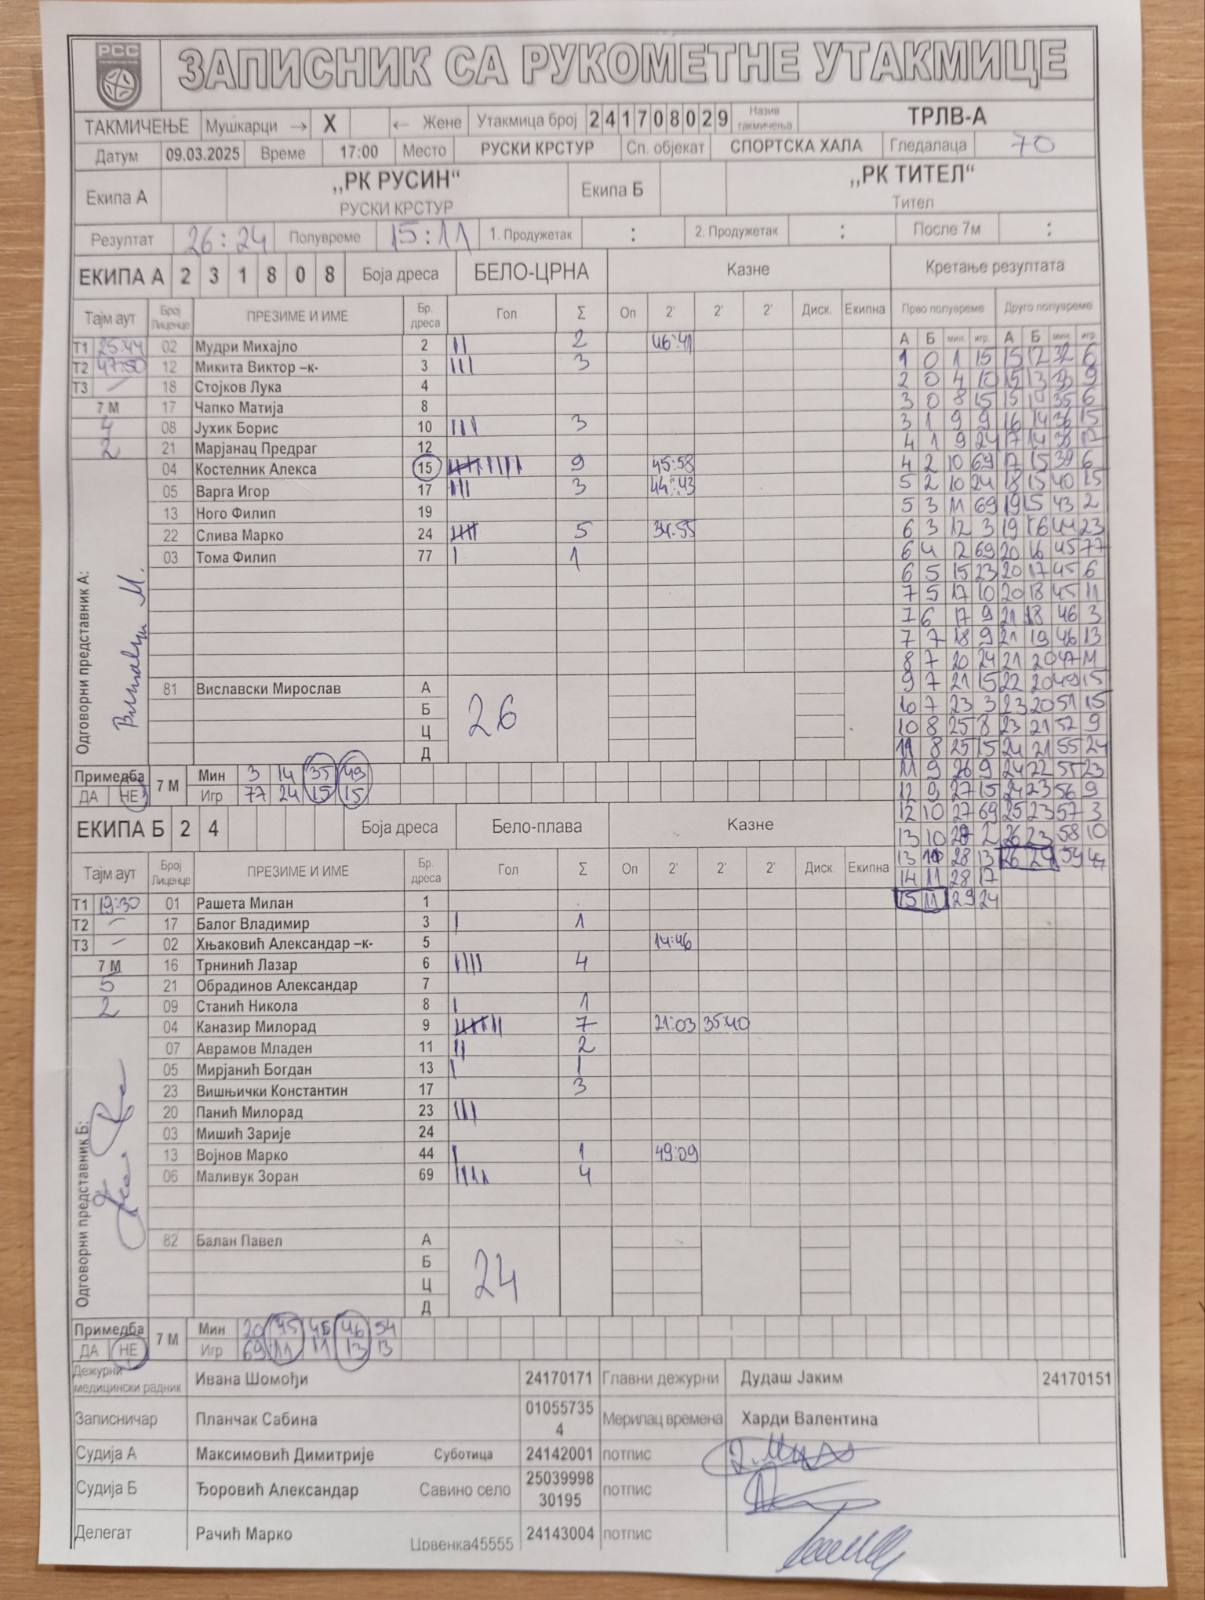 РСС
ЗАПИСНИК СА РУКОМЕТНЕ УТАКМИЦЕ
ТАКМИЧЕЊЕ Мушкарци → X ← Жене Утакмица број 241708029 Назив такмичења ТРЛВ-А
Датум 09.03.2025 Време 17:00 Место РУСКИ КРСТУР Сп. објекат СПОРТСКА ХАЛА Гледалаца 70
Екипа А „РК РУСИН“ РУСКИ КРСТУР Екипа Б „РК ТИТЕЛ“ Тител
Резултат 26:24 Полувреме 15:11 1. Продужетак : 2. Продужетак : После 7м :
ЕКИПА А 2 3 1 8 0 8 Боја дреса БЕЛО-ЦРНА Казне Кретање резултата
Тајм аут Број Лиценце ПРЕЗИМЕ И ИМЕ Бр. дреса Гол Σ Оп 2' 2' 2' Диск. Екипна Прво полувреме Друго полувреме
А Б мин. игр. А Б мин. игр.
Т1 25:44 02 Мудри Михајло 2 2 46:41
Т2 47:50 12 Микита Виктор –к- 3 3
Т3 – 18 Стојков Лука 4
7 М 17 Чапко Матија 8
4 08 Јухик Борис 10 3
2 21 Марјанац Предраг 12
04 Костелник Алекса 15 9 45:58
05 Варга Игор 17 3 44:43
13 Ного Филип 19
22 Слива Марко 24 5 34:55
03 Тома Филип 77 1
Одговорни представник А:
81 Виславски Мирослав А
Б
Ц
Д
26
1 0 1 15 15 12 32 6
2 0 4 10 15 13 33 9
3 0 8 15 15 14 35 6
3 1 9 9 16 14 36 15
4 1 9 24 17 14 38 17
4 2 10 69 17 15 39 6
5 2 10 24 18 15 40 15
5 3 11 69 19 15 43 2
6 3 12 3 19 16 44 23
6 4 12 69 20 16 45 77
6 5 15 23 20 17 45 6
7 5 17 10 20 18 45 11
7 6 17 9 21 18 46 3
7 7 18 9 21 19 46 13
8 7 20 24 21 20 47 11
9 7 21 15 22 20 49 15
10 7 23 3 23 20 51 15
10 8 25 8 23 21 52 9
11 8 25 15 24 21 55 24
11 9 26 9 24 22 55 23
12 9 27 15 24 23 56 9
12 10 27 69 25 23 57 3
13 10 28 2 26 23 58 10
13 11 28 13 26 24 59 44
14 11 28 17
15 11 29 24
Примедба ДА НЕ 7 М Мин 3 14 35 49
Игр 77 24 15 15
ЕКИПА Б 2 4 Боја дреса Бело-плава Казне
Тајм аут Број Лиценце ПРЕЗИМЕ И ИМЕ Бр. дреса Гол Σ Оп 2' 2' 2' Диск. Екипна
Т1 19:30 01 Рашета Милан 1
Т2 – 17 Балог Владимир 3 1
Т3 – 02 Хњаковић Александар –к- 5 14:46
7 М 16 Трнинић Лазар 6 4
5 21 Обрадинов Александар 7
2 09 Станић Никола 8 1
04 Каназир Милорад 9 7 21:03 35:40
07 Аврамов Младен 11 2
05 Мирјанић Богдан 13 1
23 Вишњички Константин 17 3
20 Панић Милорад 23
03 Мишић Зарије 24
13 Војнов Марко 44 1 49:09
06 Маливук Зоран 69 4
Одговорни представник Б:
82 Балан Павел А
Б
Ц
Д
24
Примедба ДА НЕ 7 М Мин 20 45 45 46 54
Игр 69 11 11 13 13
Дежурни медицински радник Ивана Шомођи 24170171 Главни дежурни Дудаш Јаким 24170151
Записничар Планчак Сабина 010557354 Мерилац времена Харди Валентина
Судија А Максимовић Димитрије Суботица 24142001 потпис
Судија Б Ђоровић Александар Савино село 2503999830195 потпис
Делегат Рачић Марко Црвенка45555 24143004 потпис